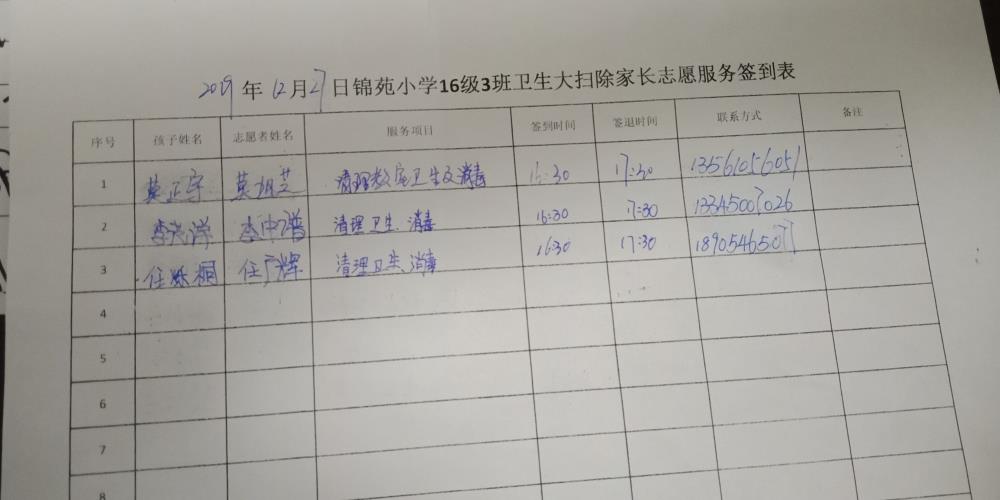 2019年12月27日锦苑小学16级3班卫生大扫除家长志愿服务签到表
序号 孩子姓名 志愿者姓名 服务项目 签到时间 签退时间 联系方式 备注
1 莫正宇 莫旭芝 清理教室卫生及消毒 16:30 17:30 13561056051
2 李 李中谱 清理卫生、消毒 16:30 17:30 13345007026
3 任烁桐 任广辉 清理卫生、消毒 16:30 17:30 18905465077
4
5
6
7
8